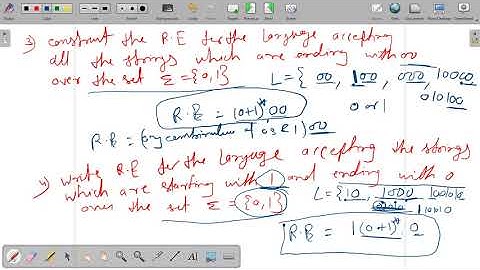 3) construct the R.E for the language accepting
all the strings which are ending with 00
over the set Σ = {0,1} L = { 00, 100, 000, 10000
0 or 1 010100
R.E = (0+1)* 00
R.E = (any combination of 0s & 1) 00
4) write R.E for the language accepting the strings
which are starting with 1 and ending with 0
over the set Σ = {0,1} L = { 10, 1000 100010
11010
R.E = 1 (0+1)* 0